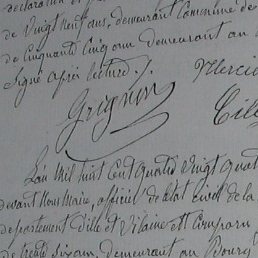 déclaration
de Vingt neuf ans, demeurant Commune de
de Cinquante Cinq ans demeurant au
Signé après lecture /.
Mercie
Grignon
L'an Mil huit Cent quatre Vingt quat
devant Nous Maire, officier de l'état Civil de la
département d'Ille et Vilaine est Comparu
de trente Six ans, demeurant au Bourg